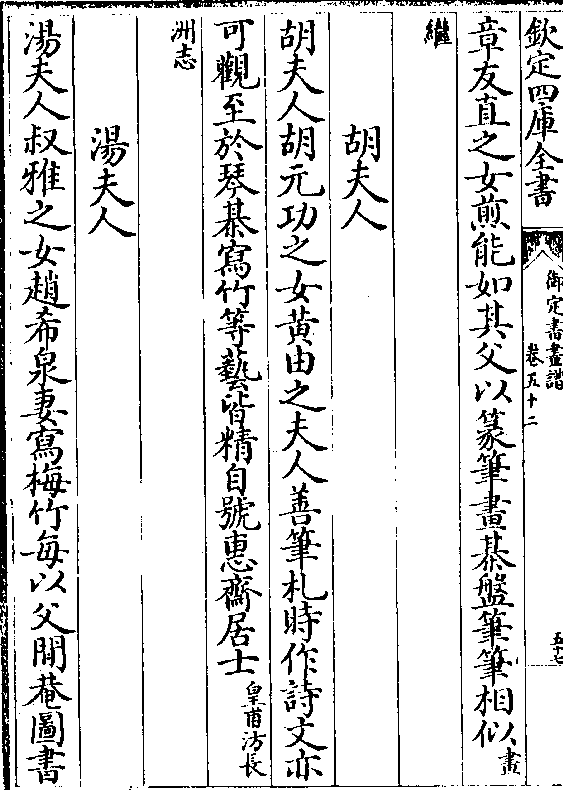 欽定四庫全書
御定書畫譜
卷五十二
五十七
章友直之女煎能如其父以篆筆畫棊盤筆筆相似畫
繼
胡夫人
胡夫人胡元功之女黄由之夫人善筆札時作詩文亦
可觀至於琴棊寫竹等藝皆精自號惠齋居士皇甫汸長
洲志
湯夫人
湯夫人叔雅之女趙希泉妻寫梅竹每以父閒菴圖書